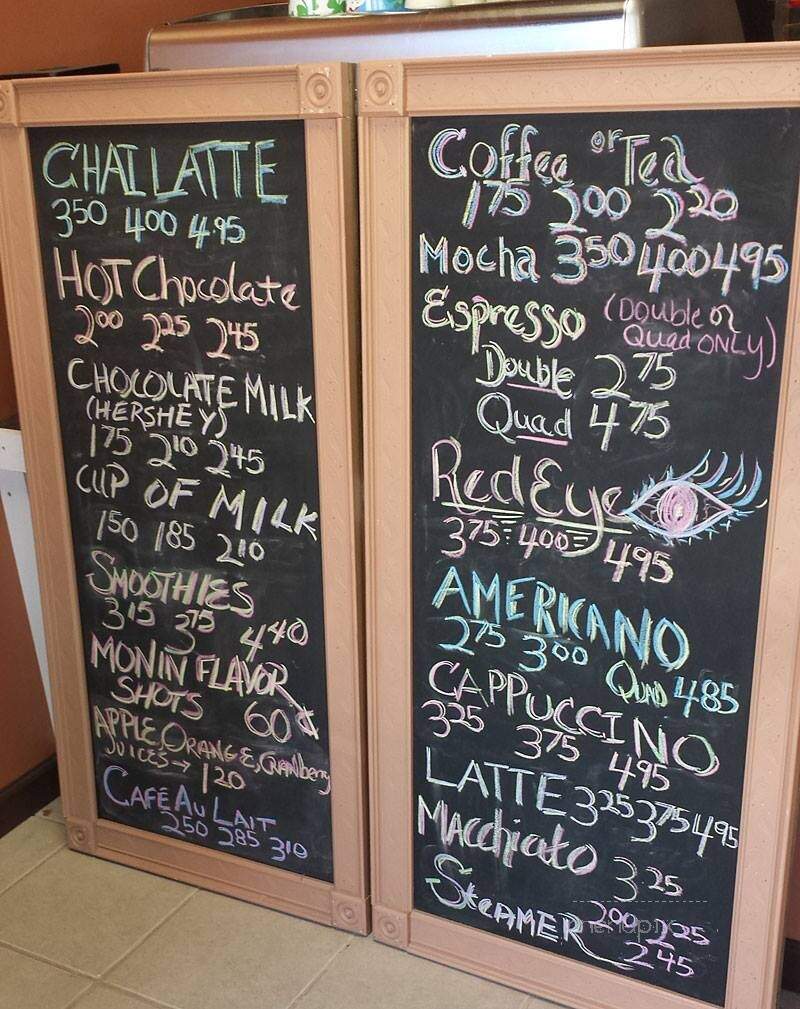 CHAI LATTE
350 400 4.95
HOT Chocolate
200 225 245
CHOCOLATE MILK
(HERSHEY)
175 210 245
CUP OF MILK
150 185 210
SMOOTHIES
315 375 440
MONIN FLAVOR
SHOTS 60¢
APPLE, ORANGE, CRANberry
JUICES → 120
CAFÉ AU LAIT
250 285 310
Coffee or Tea
175 200 220
Mocha 350 400 495
Espresso (Double or
Quad ONLY)
Double 275
Quad 475
Red Eye
375 400 495
AMERICANO
275 300 QUAD 485
CAPPUCCINO
325 375 495
LATTE 325 375 495
Macchiato 325
STEAMER 200 225
245